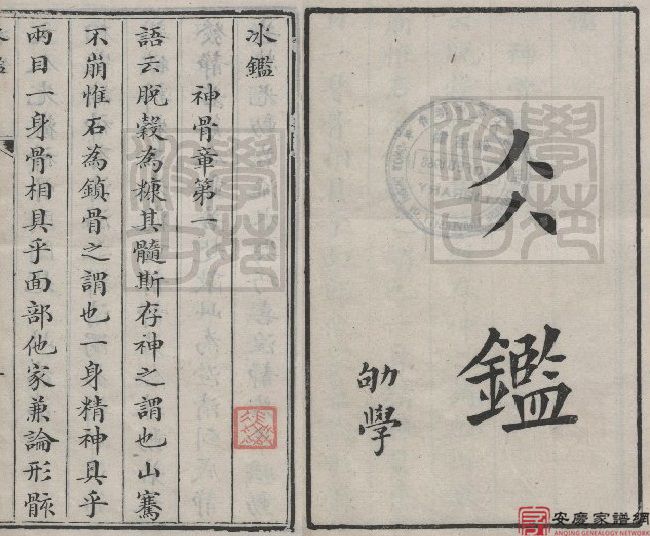 仌鑑
劬學
冰鑑
神骨章第一
語云脫穀為糠其髓斯存神之謂也山騫
不崩惟石為鎮骨之謂也一身精神具乎
兩目一身骨相具乎面部他家兼論形骸
學苑汲古
學苑汲古
安慶家譜網
ANQING GENEALOGY NETWORK